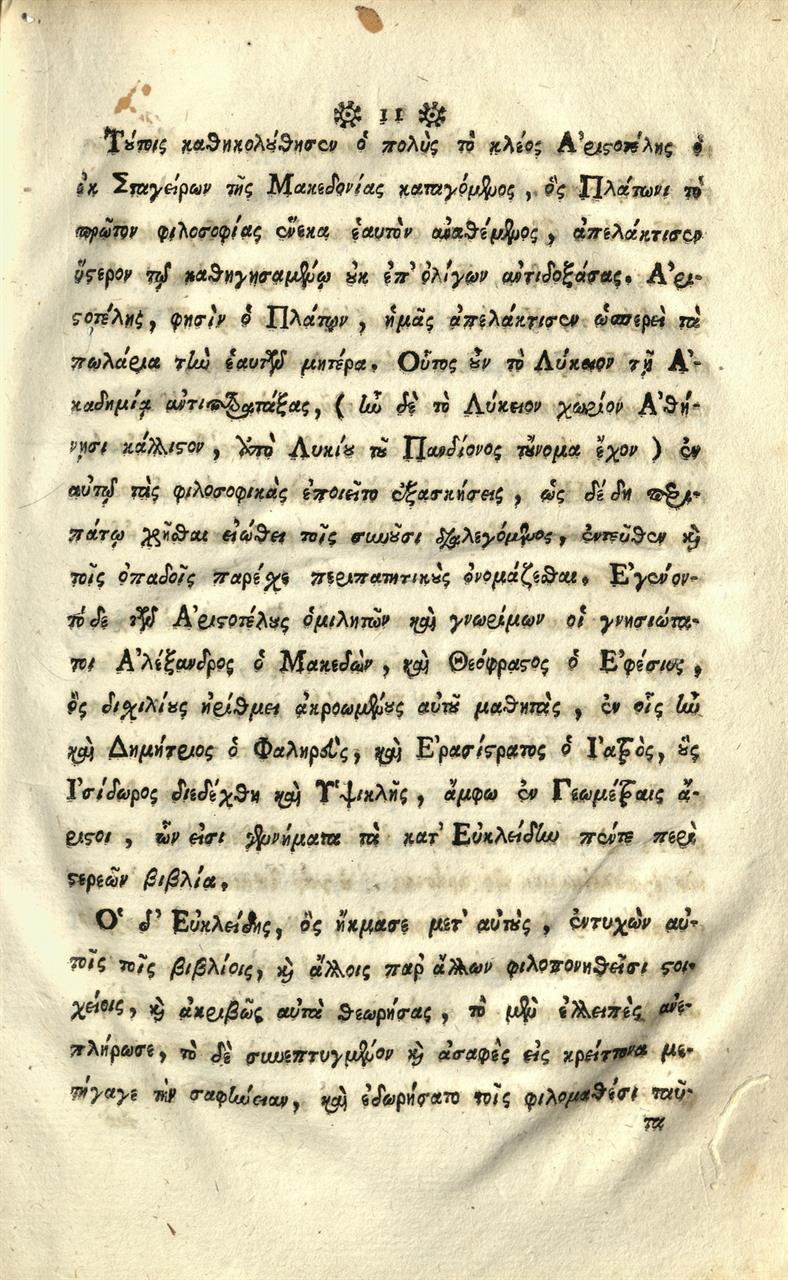 11
Τούτοις κατηκολούθησεν ὁ πολὺς τὸ κλέος Ἀριστοτέλης ὁ
ἐκ Σταγείρων τῆς Μακεδονίας καταγόμενος, ὃς Πλάτωνι τὸ
πρῶτον φιλοσοφίας ἕνεκα ἑαυτὸν ἀναθέμενος, ἀπελάκτισεν
ὕστερον τῷ καθηγησαμένῳ οὐκ ἐπ' ὀλίγων ἀντιδοξάσας. Ἀρι-
στοτέλης, φησὶν ὁ Πλάτων, ἡμᾶς ἀπελάκτισεν ὡσπερεὶ τὰ
πωλάρια τὴν ἑαυτῶν μητέρα. Οὗτος οὖν τὸ Λύκειον τῇ Ἀ-
καδημίᾳ ἀντιπαρατάξας, (ἦν δὲ τὸ Λύκειον χωρίον Ἀθή-
νησι κάλλιστον, ὑπὸ Λυκίου τοῦ Πανδίονος τοὔνομα ἔχον) ἐν
αὐτῷ τὰς φιλοσοφικὰς ἐποιεῖτο ἐξασκήσεις, ὡς δέ δη περι-
πάτῳ χρῆσθαι εἰώθει τοῖς συνοῦσι διαλεγόμενος, ἐντεῦθεν καὶ
τοῖς ὀπαδοῖς παρέσχε περιπατητικοὺς ὀνομάζεσθαι. Ἐγένον-
τό δε τῶν Ἀριστοτέλους ὁμιλητῶν καὶ γνωρίμων οἱ γνησιώτα-
τοι Ἀλέξανδρος ὁ Μακεδὼν, καὶ Θεόφραστος ὁ Ἐφέσιος,
ὃς δισχιλίους ἠρίθμει ἀκροωμένους αὐτοῦ μαθητὰς, ἐν οἷς ἦν
καὶ Δημήτριος ὁ Φαληρεὺς, καὶ Ἐρασίστρατος ὁ Ἰατρὸς, οὓς
Ἰσίδωρος διεδέχθη καὶ Ὑψικλῆς, ἄμφω ἐν Γεωμέτραις ἄ-
ριστοι, ὧν εἰσι γεννήματα τὰ κατ' Εὐκλείδην πέντε περὶ
στερεῶν βιβλία.
Ὁ δ' Εὐκλείδης, ὃς ἤκμασε μετ' αὐτοὺς, ἐντυχὼν αὐ-
τοῖς τοῖς βιβλίοις, καὶ ἄλλοις παρ' ἄλλων φιλοπονηθεῖσι στοι-
χείοις, καὶ ἀκριβῶς αὐτὰ θεωρήσας, τὸ μὲν ἐλλειπὲς ἀνε-
πλήρωσε, τὸ δὲ συνεπτυγμένον καὶ ἀσαφὲς εἰς κρείττονα με-
τήγαγε τὴν σαφήνειαν, καὶ ἐδωρήσατο τοῖς φιλομαθέσι ταῦ-
τα